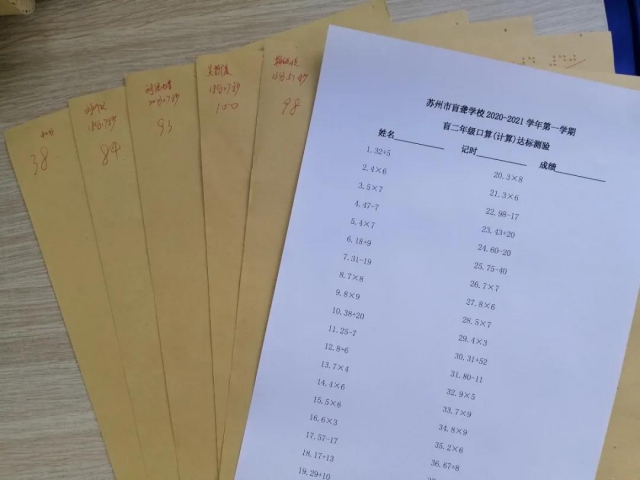 苏州市盲聋学校 2020-2021 学年第一学期
盲二年级口算(计算)达标测验
姓名 记时 成绩
1.32+5
2.4×6
3.5×7
4.47-7
5.4×7
6.18+9
7.31-19
8.7×8
9.8×9
10.38+20
11.25-7
12.8+6
13.7×4
14.4×6
15.5×6
16.6×3
17.57-17
18.17+13
19.29+10
20.3×8
21.3×6
22.98-17
23.43+20
24.60-20
25.75-40
26.7×7
27.8×6
28.5×7
29.4×3
30.31+52
31.80-11
32.9×5
33.7×9
34.8×9
35.2×6
36.67+8
38
84
93
100
98